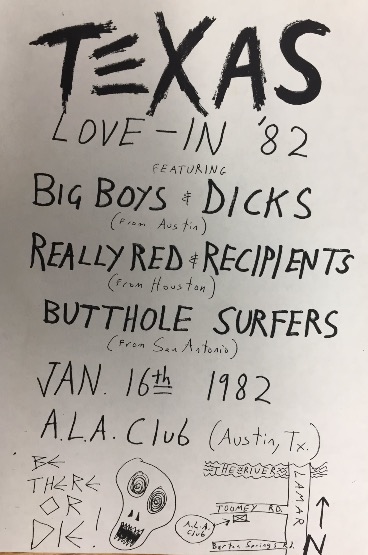 TEXAS
LOVE-IN '82
FEATURING
BIG BOYS & DICKS
(from Austin)
REALLY RED & RECIPIENTS
(from Houston)
BUTTHOLE SURFERS
(from San Antonio)
JAN. 16th 1982
A.L.A. Club (Austin, Tx.)
BE
THERE
OR
DIE!
THE RIVER
LAMAR
TOOMEY RD.
A.L.A.
Club
Barton Springs Rd.
N